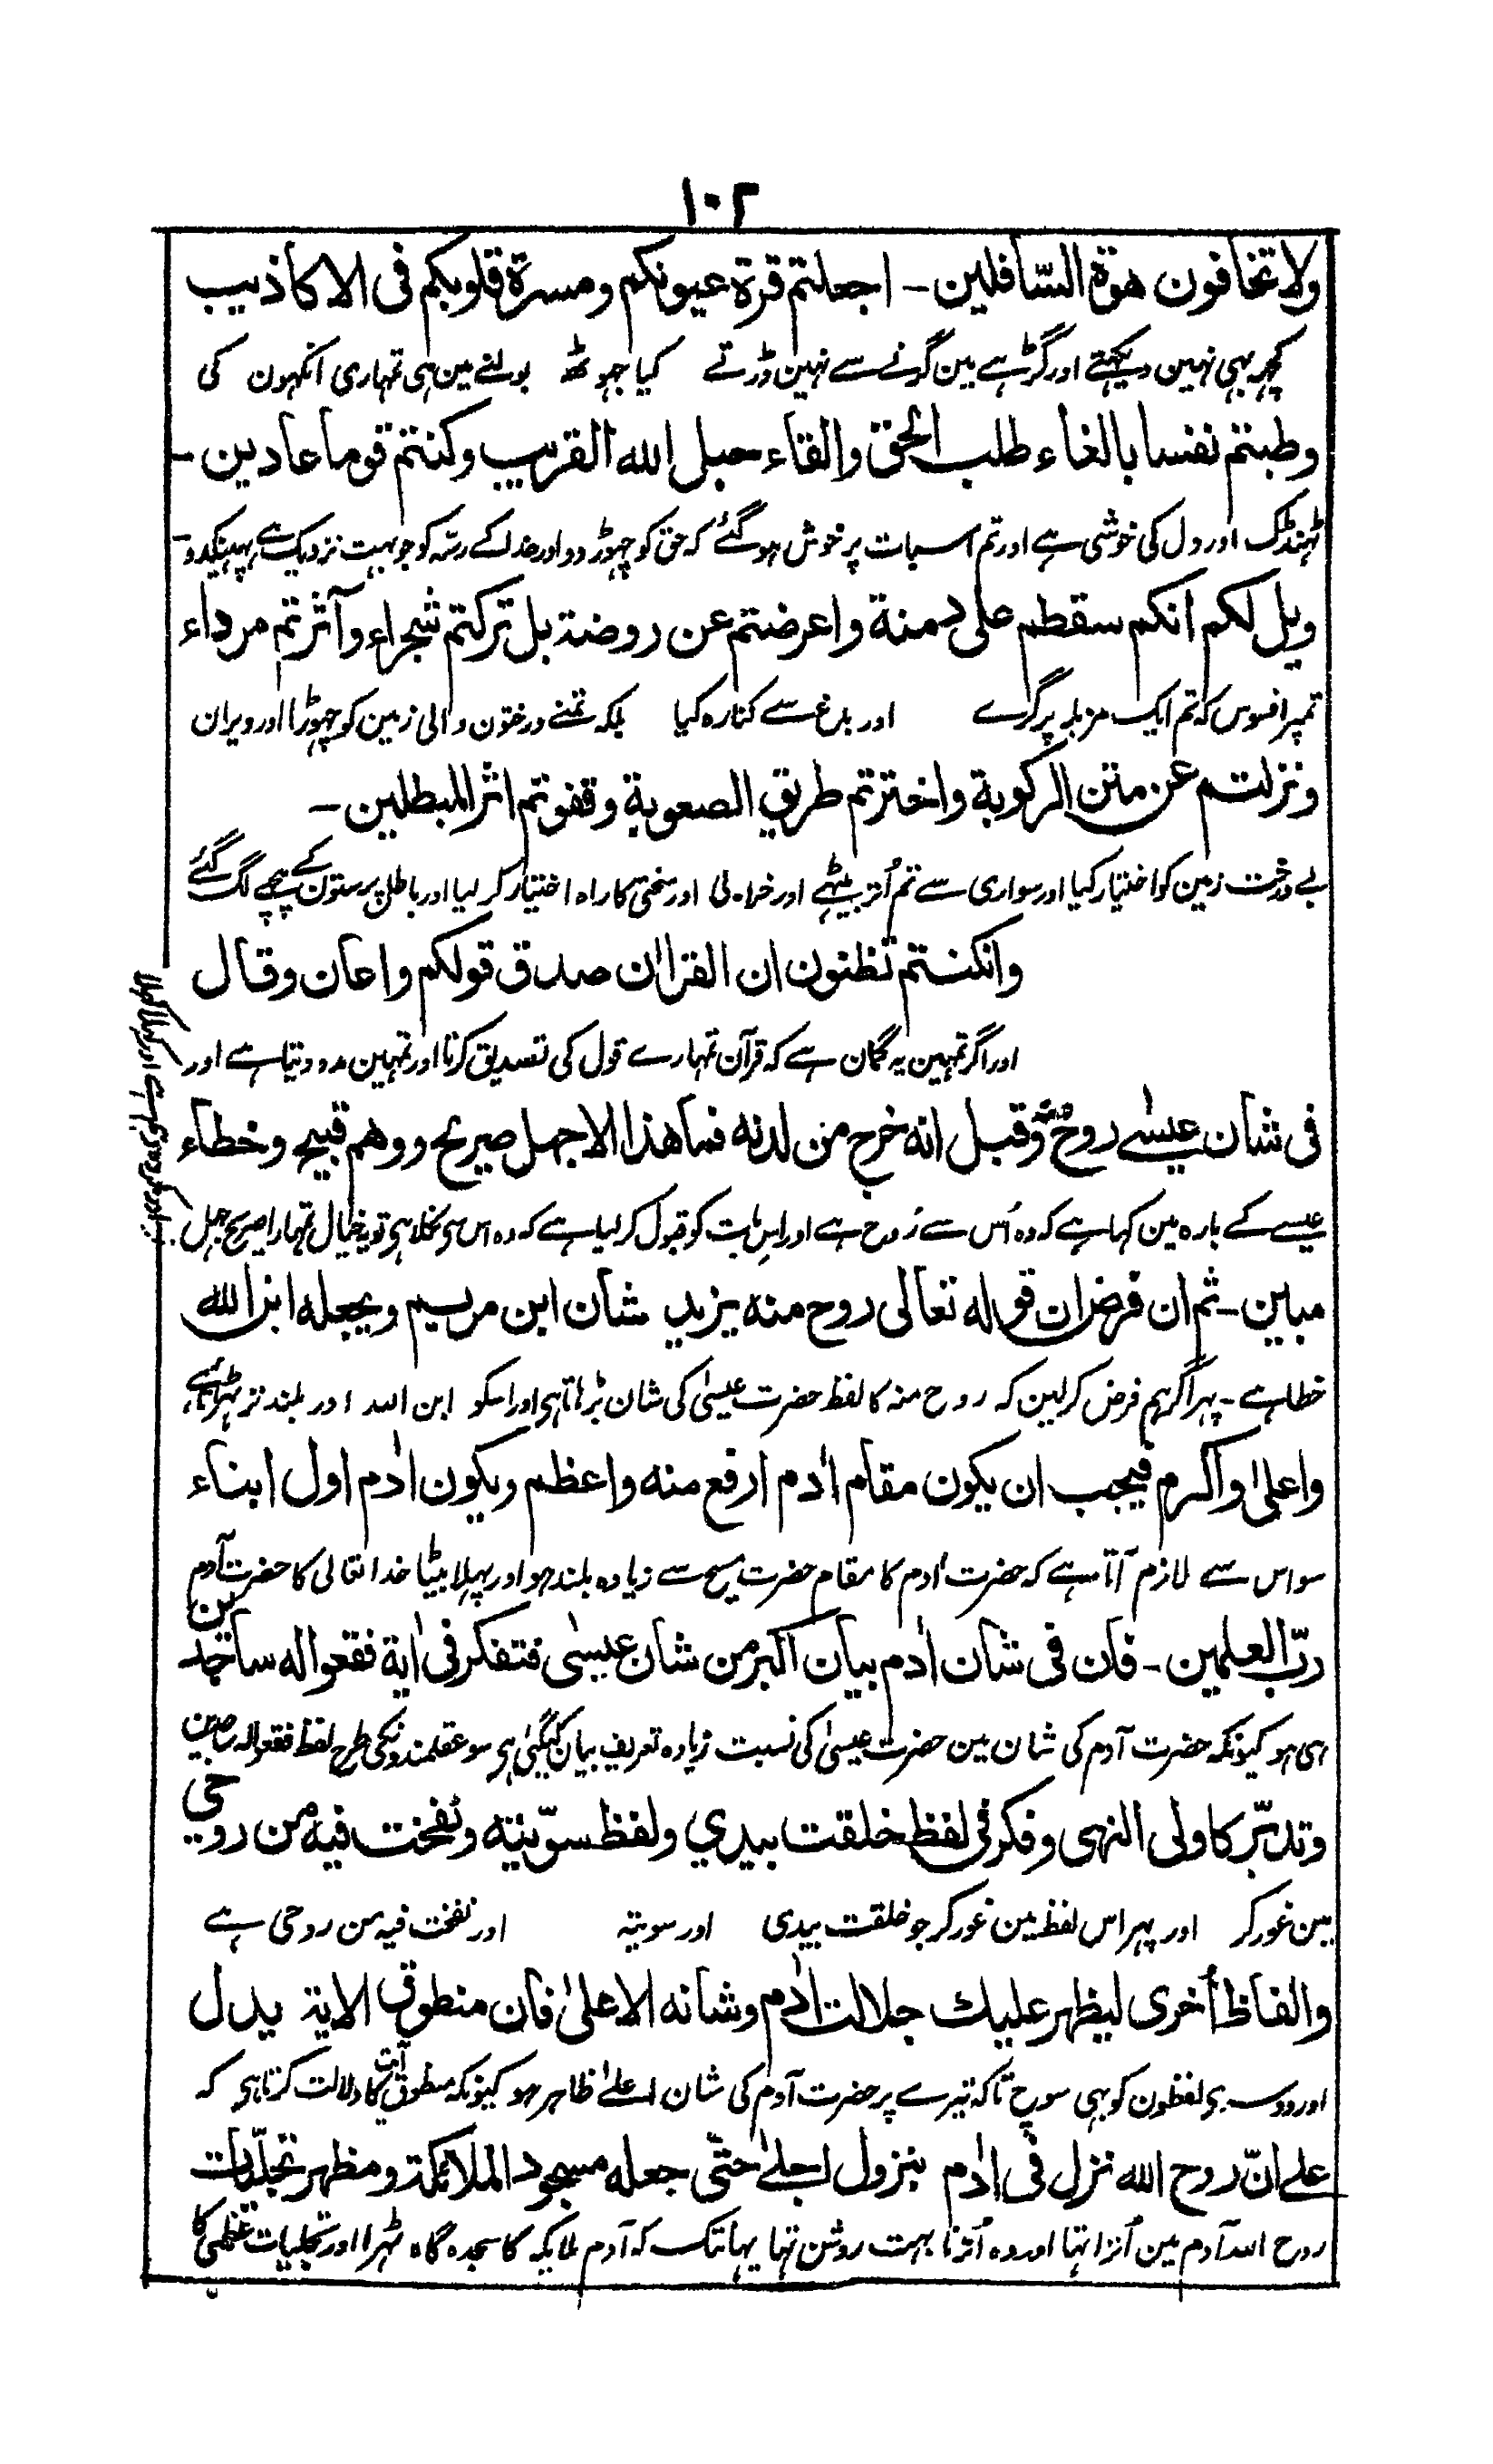 ۱۰۲
ولا تخافون هوة السّافلين - اجعلتم قرة عيونكم ومسرة قلوبكم فى الاكاذيب
كچهہ بہى نہين ديكہتے اور گڑہے مين گرنے سے نہين ڈرتے كيا جہوٹھ بولنے مين ہى تمہارى انكہون كى
وطبتم نفسا بالغاء طلب الحق والقاء حبل الله القريب وكنتم قوما عادين -
ٹہنڈک اور دل كى خوشى ہے اور تم اسبات پر خوش ہو گئے كہ حق كو چہوڑ دو اور خدا كے رسّہ كو جو بہت نزديک ہے پہينكدو -
ويل لكم انكم سقطتم على دمنة واعرضتم عن روضة بل تركتم شجراء وآثرتم مرداء
تمپر افسوس كہ تم ايک مزبلہ پر گرے اور باغ سے كنارہ كيا بلكہ تمنے درختون والى زمين كو چہوڑا اور ويران
ونزلتم عن متن الركوبة واخترتم طريق الصعوبة وقفوتم اثر المبطلين -
بے درخت زمين كو اختيار كيا اور سوارى سے تم اُتر بيٹہے اور سختى كا راہ اختيار كر ليا اور باطل پرستون كے پيچهے لگ گئے
وانكنتم تظنون ان القران صدق قولكم واعان وقال
اور اگر تمہين يہ گمان ہے كہ قرآن تمہارے قول كى تصديق كرتا اور تمہين مدد ديتا ہے اور
فى شان عيسىٰ روحٌ منه وقبل انه خرج من لدنه فما هذا الا جهل صريح ووهم قبيح وخطاء
عيسے كے بارہ مين كہا ہے كہ وہ اُس سے رُوح ہے اور اِس بات كو قبول كر ليا ہے كہ وہ اس سى نكلا ہى تو يہ خيال تمہارا صريح جہل
مبين - ثم ان فرض ان قوله تعالى روح منه يزيد شان ابن مريم ويجعله ابن الله
خطا ہے - پہر اگر ہم فرض كر لين كہ روح منہ كا لفظ حضرت عيسىٰ كى شان بڑہاتا ہى اور اسكو ابن اللہ اور بلند تر ٹہراتا ہے
واعلىٰ واكرم فيجب ان يكون مقام اٰدم ارفع منه واعظم ويكون اٰدم اول ابناء
سو اس سے لازم آتا ہے كہ حضرت اٰدم كا مقام حضرت مسيح سے زيادہ بلند ہو اور پہلا بيٹا خدا تعالى كا حضرت آدم
ربّ العلمين - فان فى شان اٰدم بيان اكبر من شان عيسىٰ فتفكر فى اٰية فقعوا له ساجدين
ہى ہو كيونكہ حضرت آدم كى شان مين حضرت عيسىٰ كى نسبت زيادہ تعريف بيان كيگئى ہى سو عقلمندونكى طرح لفظ فقعوا لہ ساجدين
وتدبّر كاولى النهى وفكر فى لفظ خلقت بيدي ولفظ سوّيته ونفخت فيه من روحي
مين غور كر اور پہر اس لفظ مين غور كر جو خلقت بيدى اور سويتہ اور نفخت فيہ من روحى ہے
والفاظ أخرى ليظهر عليك جلالت اٰدم وشانه الاعلىٰ فان منطوق الاية يدل
اور دوسرى لفظون كو بہى سوچ تا كہ تيرے پر حضرت آدم كى شان اعلےٰ ظاہر ہو كيونكہ منطوق آيت كا دلالت كرتا ہى كہ
على انّ روح الله نزل فى اٰدم بنزول اجلىٰ حتّى جعله مسجود الملائكة ومظهر تجلّيات
روح اللہ آدم مين اُترا تہا اور وہ اُترنا بہت روشن تہا يہانتک كہ آدم ملايكہ كا سجدہ گاہ ٹہرا اور تجليات عظمىٰ كا